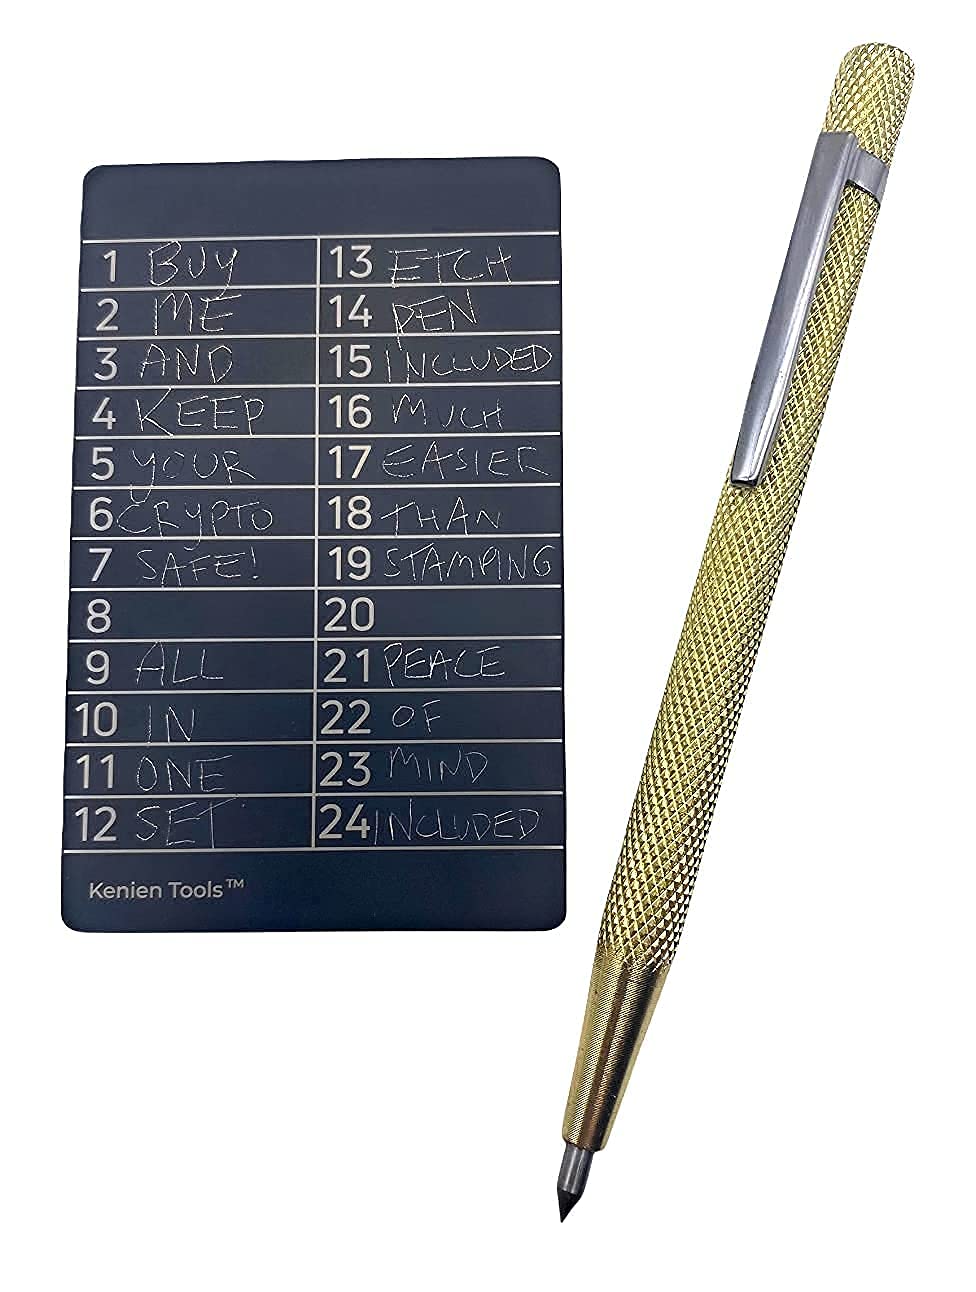 1 BUY
2 ME
3 AND
4 KEEP
5 YOUR
6 CRYPTO
7 SAFE!
8
9 ALL
10 IN
11 ONE
12 SET
13 ETCH
14 PEN
15 INCLUDED
16 MUCH
17 EASIER
18 THAN
19 STAMPING
20
21 PEACE
22 OF
23 MIND
24 INCLUDED
Kenien Tools™